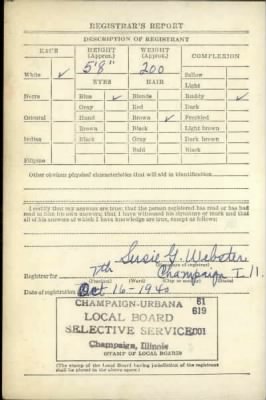 REGISTRAR'S REPORT
DESCRIPTION OF REGISTRANT
RACE HEIGHT (Approx.) WEIGHT (Approx.) COMPLEXION
White ✓ 5'8" 200 Sallow
EYES HAIR Light
Negro Blue ✓ Blonde Ruddy ✓
Gray Red Dark
Oriental Hazel Brown ✓ Freckled
Brown Black Light brown
Indian Black Gray Dark brown
Bald Black
Filipino
Other obvious physical characteristics that will aid in identification
I certify that my answers are true; that the person registered has read or has had
read to him his own answers; that I have witnessed his signature or mark and that
all of his answers of which I have knowledge are true, except as follows:
Susie G. Webster
(Signature of registrar)
Registrar for 7th Champaign Ill.
(Precinct) (Ward) (City or county) (State)
Date of registration Oct 16-1940
CHAMPAIGN-URBANA 61
LOCAL BOARD 619
SELECTIVE SERVICE 001
Champaign, Illinois
(STAMP OF LOCAL BOARD)
(The stamp of the Local Board having jurisdiction of the registrant
shall be placed in the above space.)